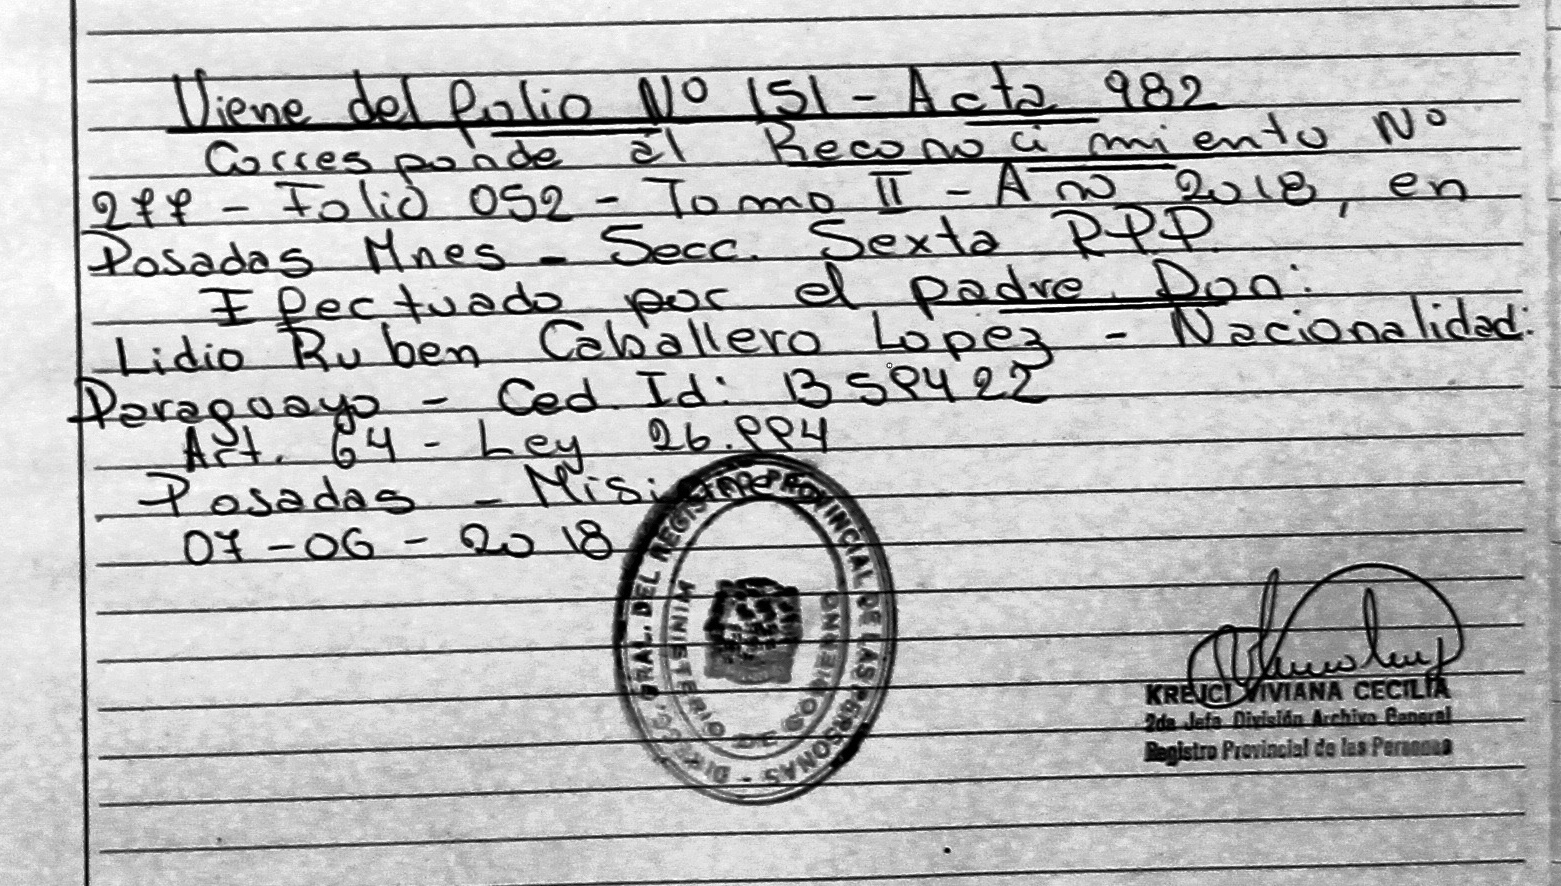 Viene del folio Nº 151 - Acta 982
Corresponde al Reconocimiento Nº
277 - Folio 052 - Tomo II - Año 2018, en
Posadas Mnes - Secc. Sexta RPP.
Efectuado por el padre Don:
Lidio Ruben Caballero Lopez - Nacionalidad:
Paraguayo - Ced. Id: 1359422
Art. 64 - Ley 26.994
Posadas - Misi
07-06-2018
DEL REGISTRO PROVINCIAL DE LAS PERSONAS
MINISTERIO DE GOBIERNO
KREJCI VIVIANA CECILIA
2da Jefa División Archivo General
Registro Provincial de las Personas